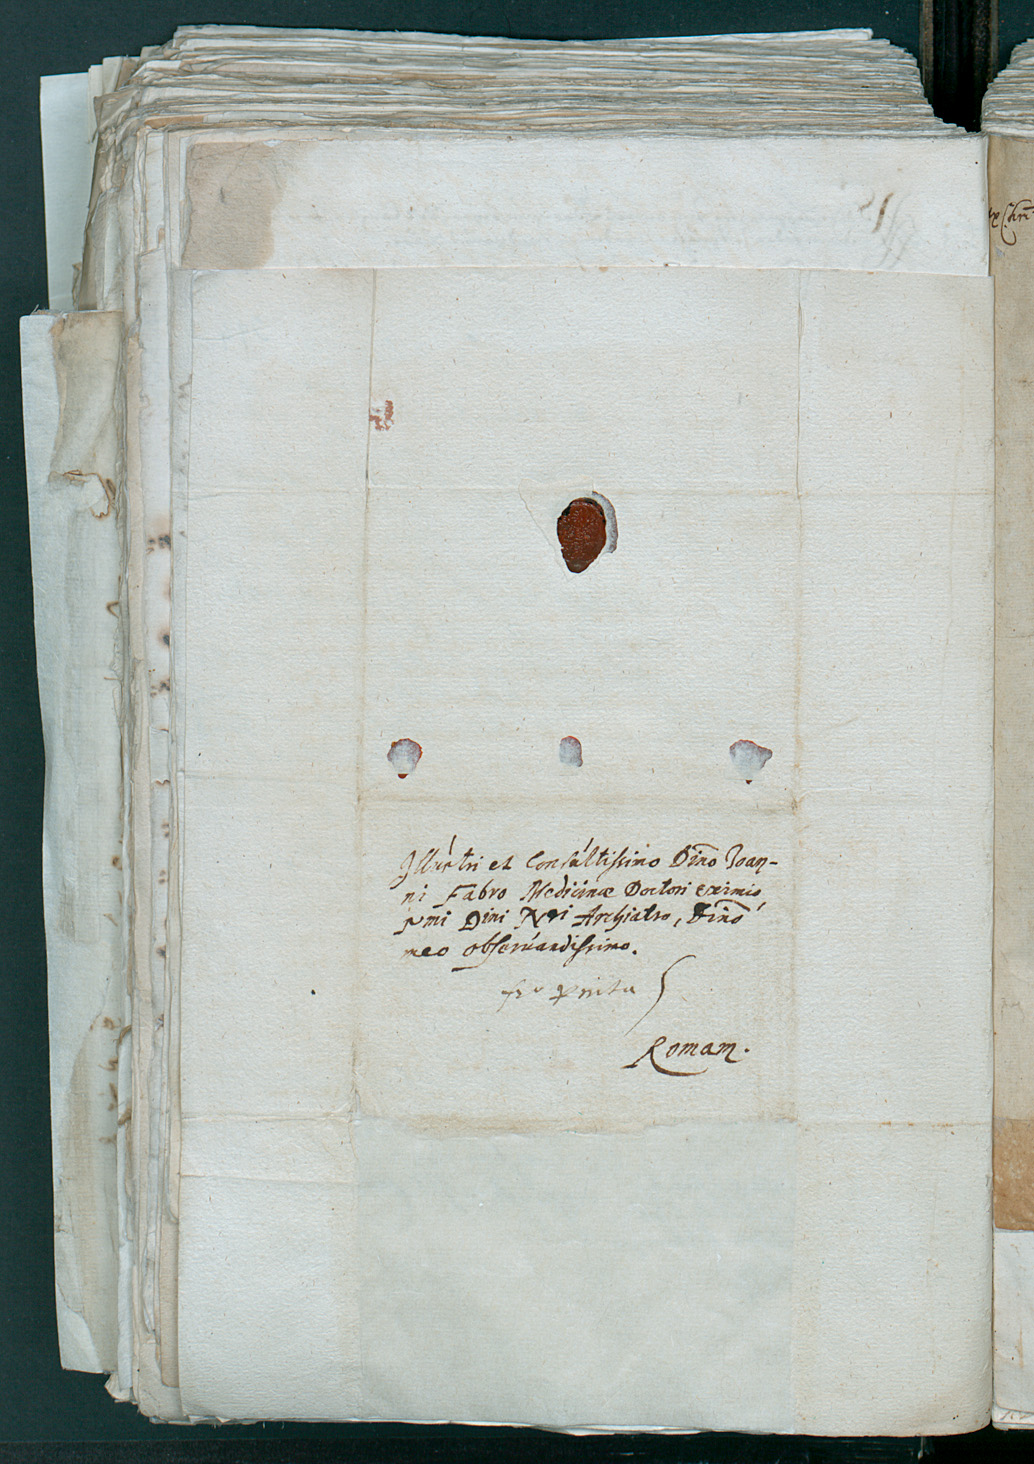 Illustri et Consultissimo Dīno Joan-
ni Fabro Medicinæ Doctori eximio,
Dīni Nri Archiatro, Dīno
meo obseruandissimo.
Romam.